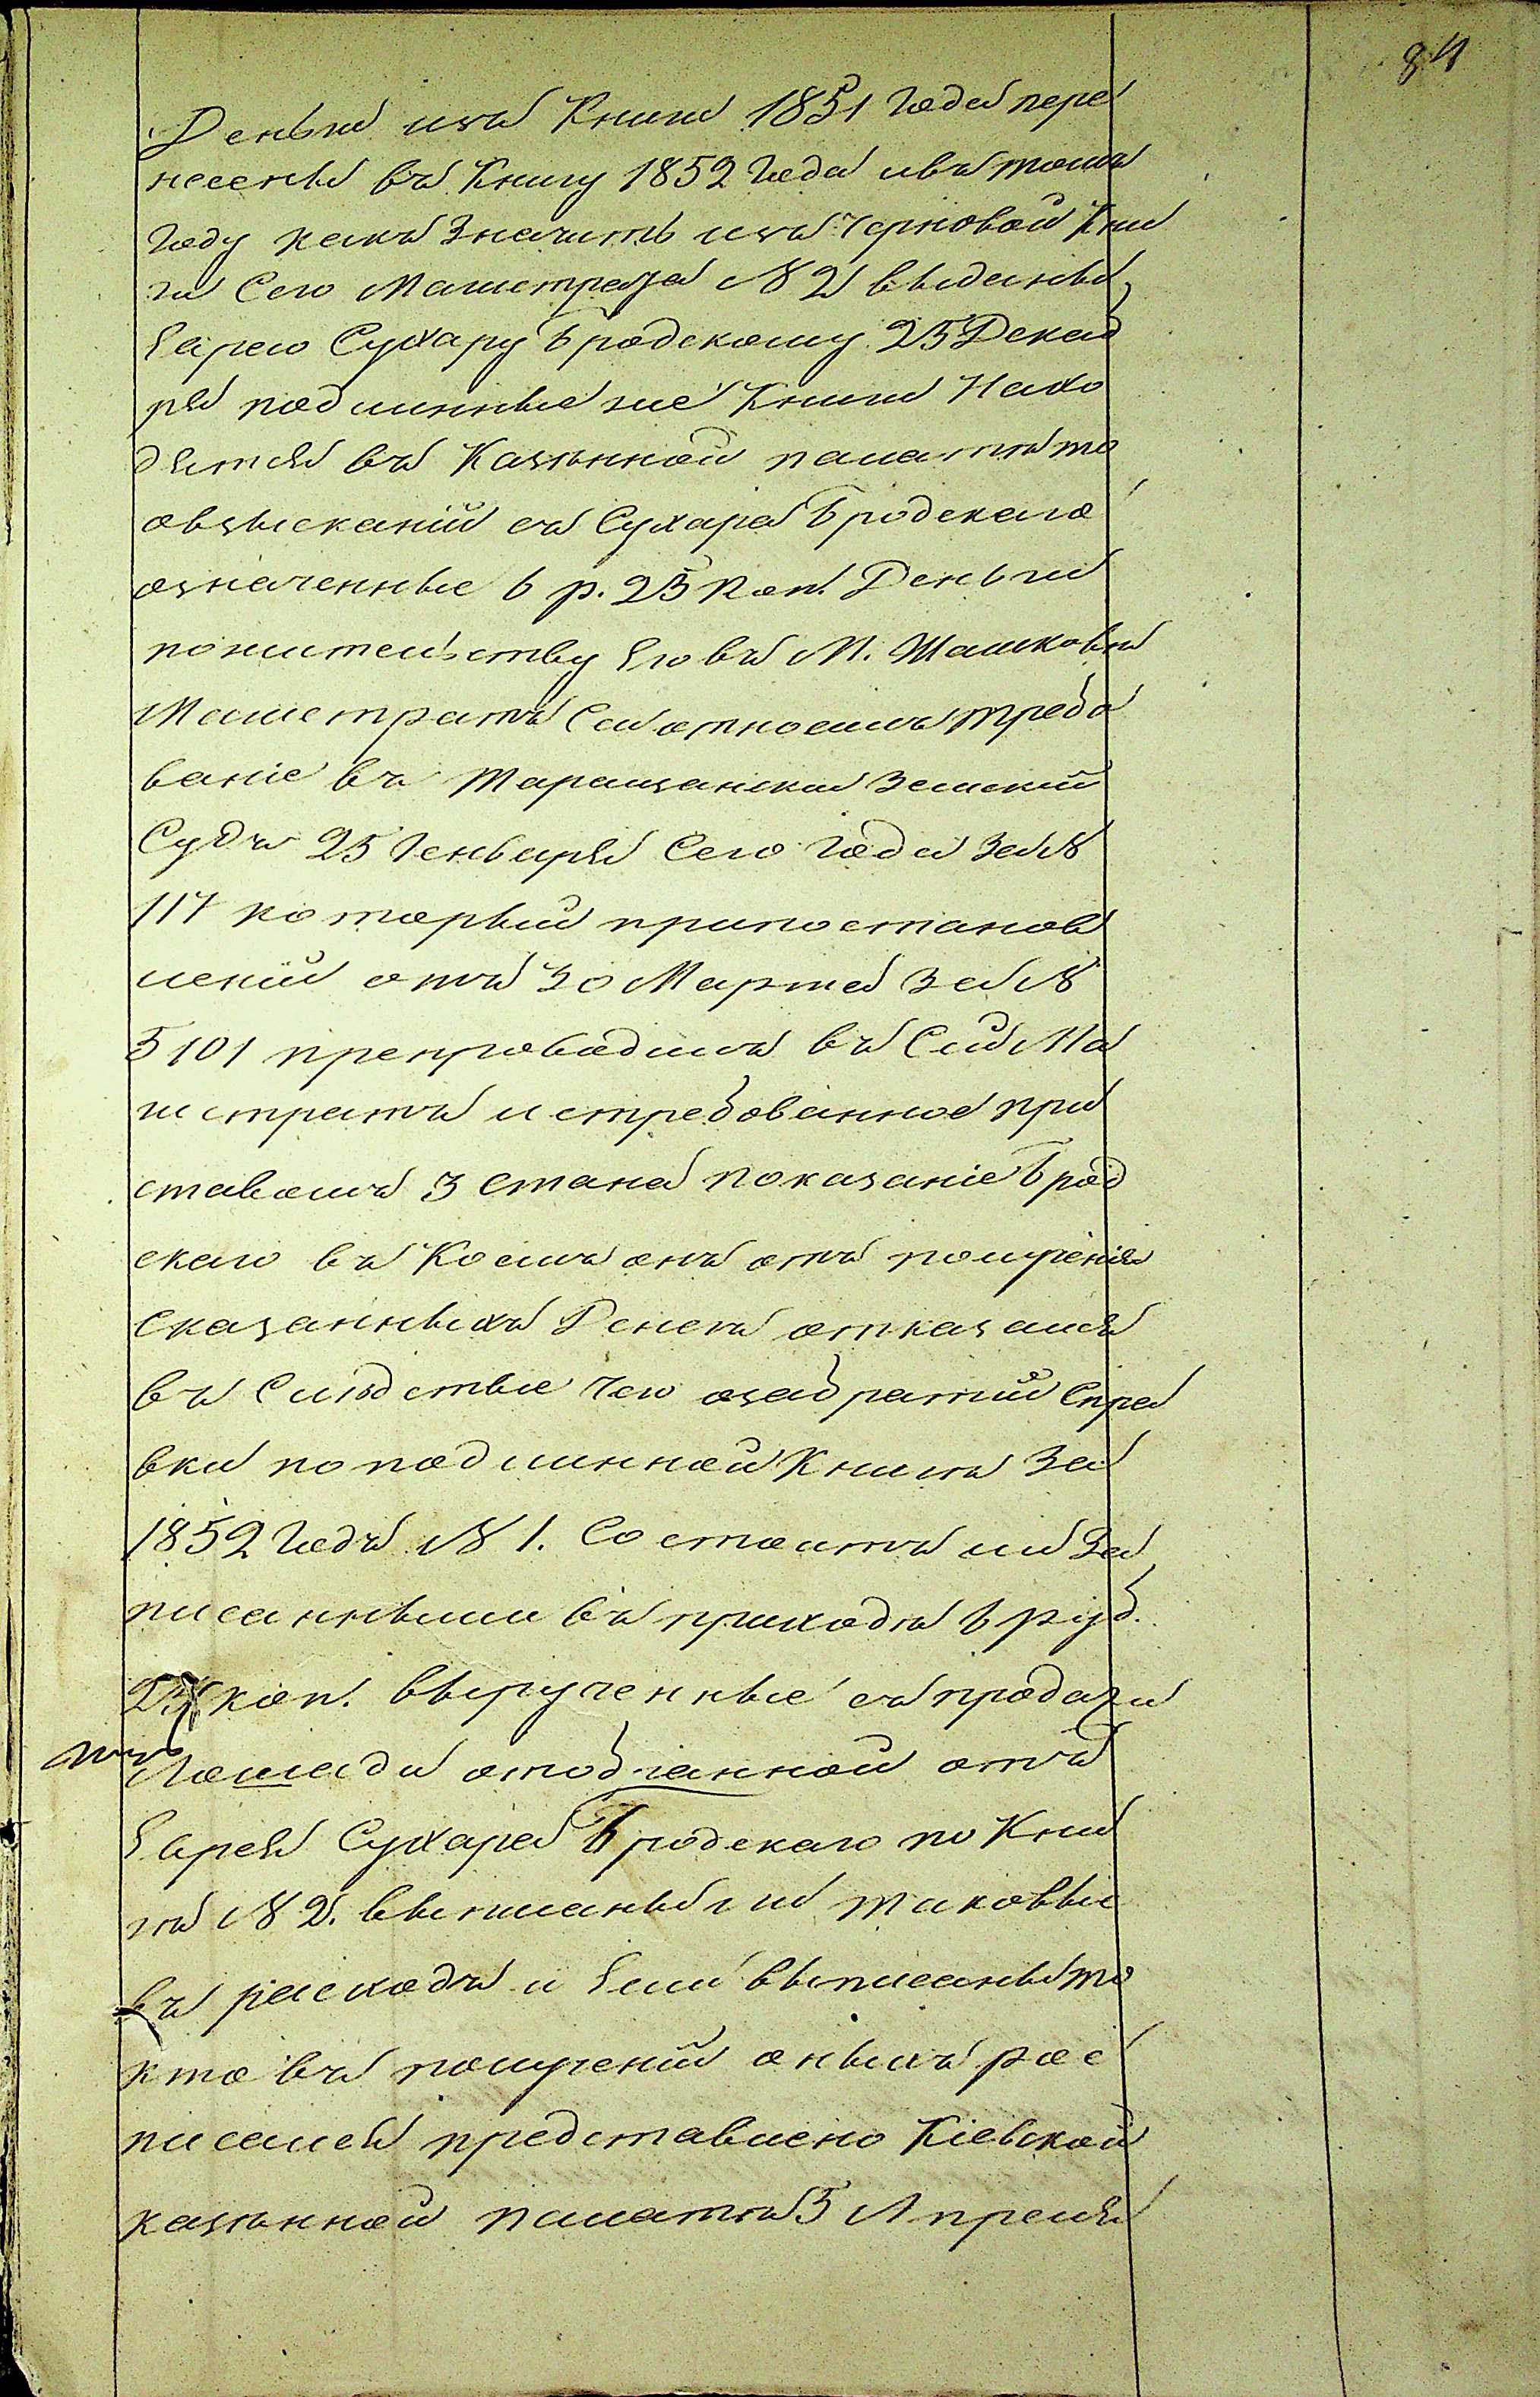 84
Деньги изъ Книги 1851 года пере
несены въ Книгу 1852 года ивъ томъ
году какъ значить изъ черновой Кни
ги Сего Магистрата № 2й выданы
Еврею Сухару Бродскому 25 Декаб
ря подлинные же Книги Нахо
дятся въ Казенной палатѣ то
овзысканіи съ Сухара Бродскаго
означенные 6 р. 25 коп. Деньги
пожительству Его въ М. Шашковки
Магистратъ Сей относилъ требо
ваніе въ Таращанскій Земскій
Судъ 25 Генваря Сего года за №
117 который припостанов
леніи отъ 30 Марта за №
5101 препроводилъ въ Сей Ма
гистратъ истребованное при
ставомъ 3 Стана показаніе Брод
скаго въ Коемъ онъ отъ полученія
Сказанныхъ Денегъ отказался
въ Слѣдствіе чего обзабратіи Спра
вки поподлинной Книгѣ за
1852 годъ № 1. Состоитъ ли За
писанными въ приходѣ 6 руб.
25 коп. вырученные съ продажи
Лошади отобранной отъ
Еврея Сухара Бродскаго по Кни
гѣ № 2. выписаныли таковые
въ расходъ и Ели выписаны то
кто въ полученіи оныхъ рос
писался представлено Кіевской
казенной палатѣ 5 Апреля